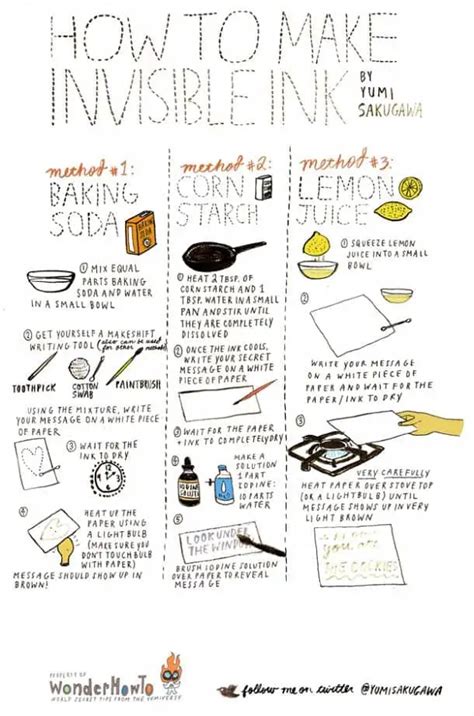 HOW TO MAKE
INVISIBLE INK
BY
YUMI
SAKUGAWA
method #1:
BAKING
SODA
① MIX EQUAL
PARTS BAKING
SODA AND WATER
IN A SMALL BOWL
② GET YOURSELF A MAKESHIFT
WRITING TOOL (also can be used
for other methods)
TOOTHPICK
COTTON
SWAB
PAINTBRUSH
USING THE MIXTURE, WRITE
YOUR MESSAGE ON A WHITE PIECE
OF PAPER
③ WAIT FOR THE
INK TO DRY
④ HEAT UP THE
PAPER USING
A LIGHT BULB
(MAKE SURE YOU
DON'T TOUCH BULB
WITH PAPER)
MESSAGE SHOULD SHOW UP IN
BROWN!
method #2:
CORN
STARCH
① HEAT 2 TBSP. OF
CORN STARCH AND 1
TBSP. WATER IN A SMALL
PAN AND STIR UNTIL
THEY ARE COMPLETELY
DISSOLVED
② ONCE THE INK COOLS,
WRITE YOUR SECRET
MESSAGE ON A WHITE
PIECE OF PAPER
③ WAIT FOR THE PAPER
+ INK TO COMPLETELY DRY
④ MAKE A
SOLUTION
1 PART
IODINE:
10 PARTS
WATER
IODINE
⑤ LOOK UNDER
THE WINDOW
BRUSH IODINE SOLUTION
OVER PAPER TO REVEAL
MESSAGE
method #3:
LEMON
JUICE
① SQUEEZE LEMON
JUICE INTO A SMALL
BOWL
②
WRITE YOUR MESSAGE
ON A WHITE PIECE OF
PAPER AND WAIT FOR THE
PAPER/INK TO DRY
③
VERY CAREFULLY
HEAT PAPER OVER STOVE TOP
(OR A LIGHTBULB) UNTIL
MESSAGE SHOWS UP IN VERY
LIGHT BROWN
you ate
THE COOKIES
PROPERTY OF
WonderHowTo
follow me on twitter @YUMISAKUGAWA